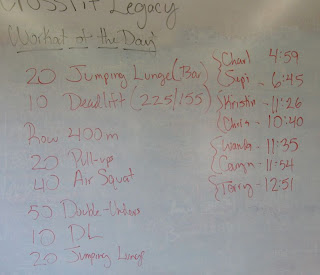 Crossfit Legacy
Workout of the Day
20 Jumping Lunge (Bar)
10 Deadlift (225/155)
Row 400m
20 Pull-ups
40 Air Squat
50 Double-Unders
10 DL
20 Jumping Lunge
4:59
6:45
Kristin - 11:26
Chris - 10:40
11:35
11:54
Terry - 12:51